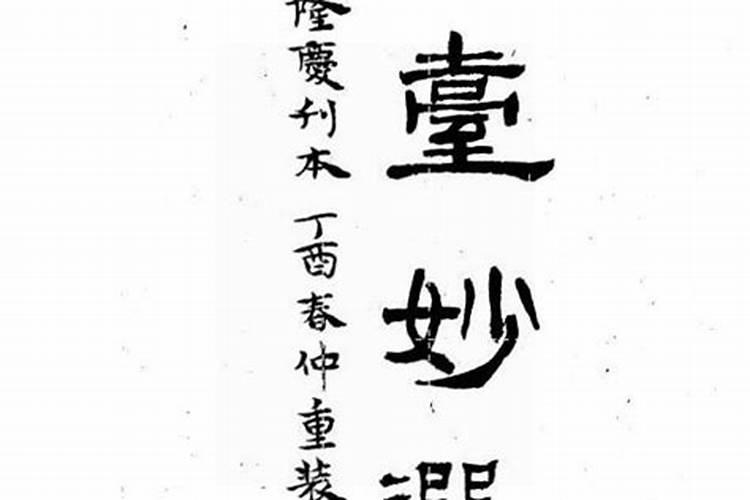 臺妙
隆慶刊本 丁酉春仲重裝